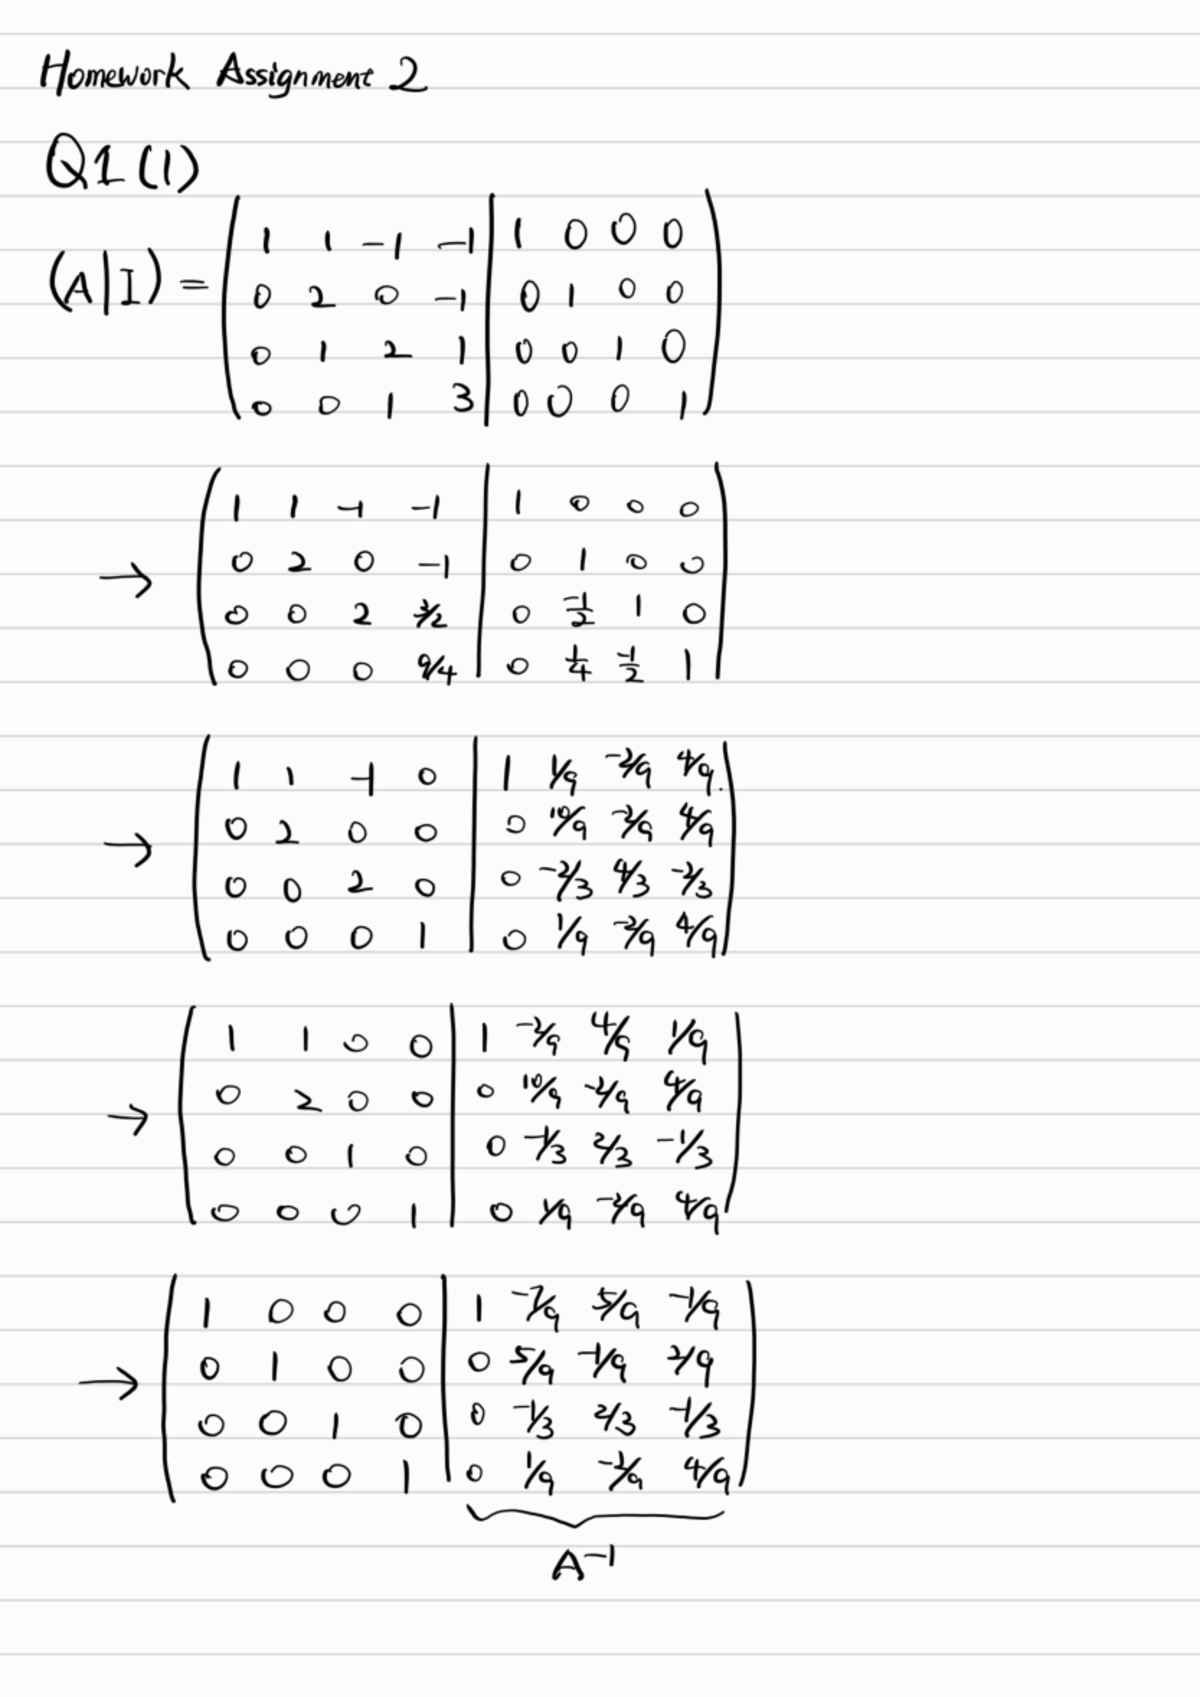 Homework Assignment 2
Q1 (1)
(A|I) = ( 1 1 -1 -1 | 1 0 0 0 )
0 2 0 -1 | 0 1 0 0
0 1 2 1 | 0 0 1 0
0 0 1 3 | 0 0 0 1
→ ( 1 1 -1 -1 | 1 0 0 0 )
0 2 0 -1 | 0 1 0 0
0 0 2 3/2 | 0 -1/2 1 0
0 0 0 9/4 | 0 1/4 -1/2 1
→ ( 1 1 -1 0 | 1 1/9 -2/9 4/9 )
0 2 0 0 | 0 10/9 -2/9 4/9
0 0 2 0 | 0 -2/3 4/3 -2/3
0 0 0 1 | 0 1/9 -2/9 4/9
→ ( 1 1 0 0 | 1 -2/9 4/9 1/9 )
0 2 0 0 | 0 10/9 -2/9 4/9
0 0 1 0 | 0 -1/3 2/3 -1/3
0 0 0 1 | 0 1/9 -2/9 4/9
→ ( 1 0 0 0 | 1 -7/9 5/9 -1/9 )
0 1 0 0 | 0 5/9 -1/9 2/9
0 0 1 0 | 0 -1/3 2/3 -1/3
0 0 0 1 | 0 1/9 -2/9 4/9
A⁻¹